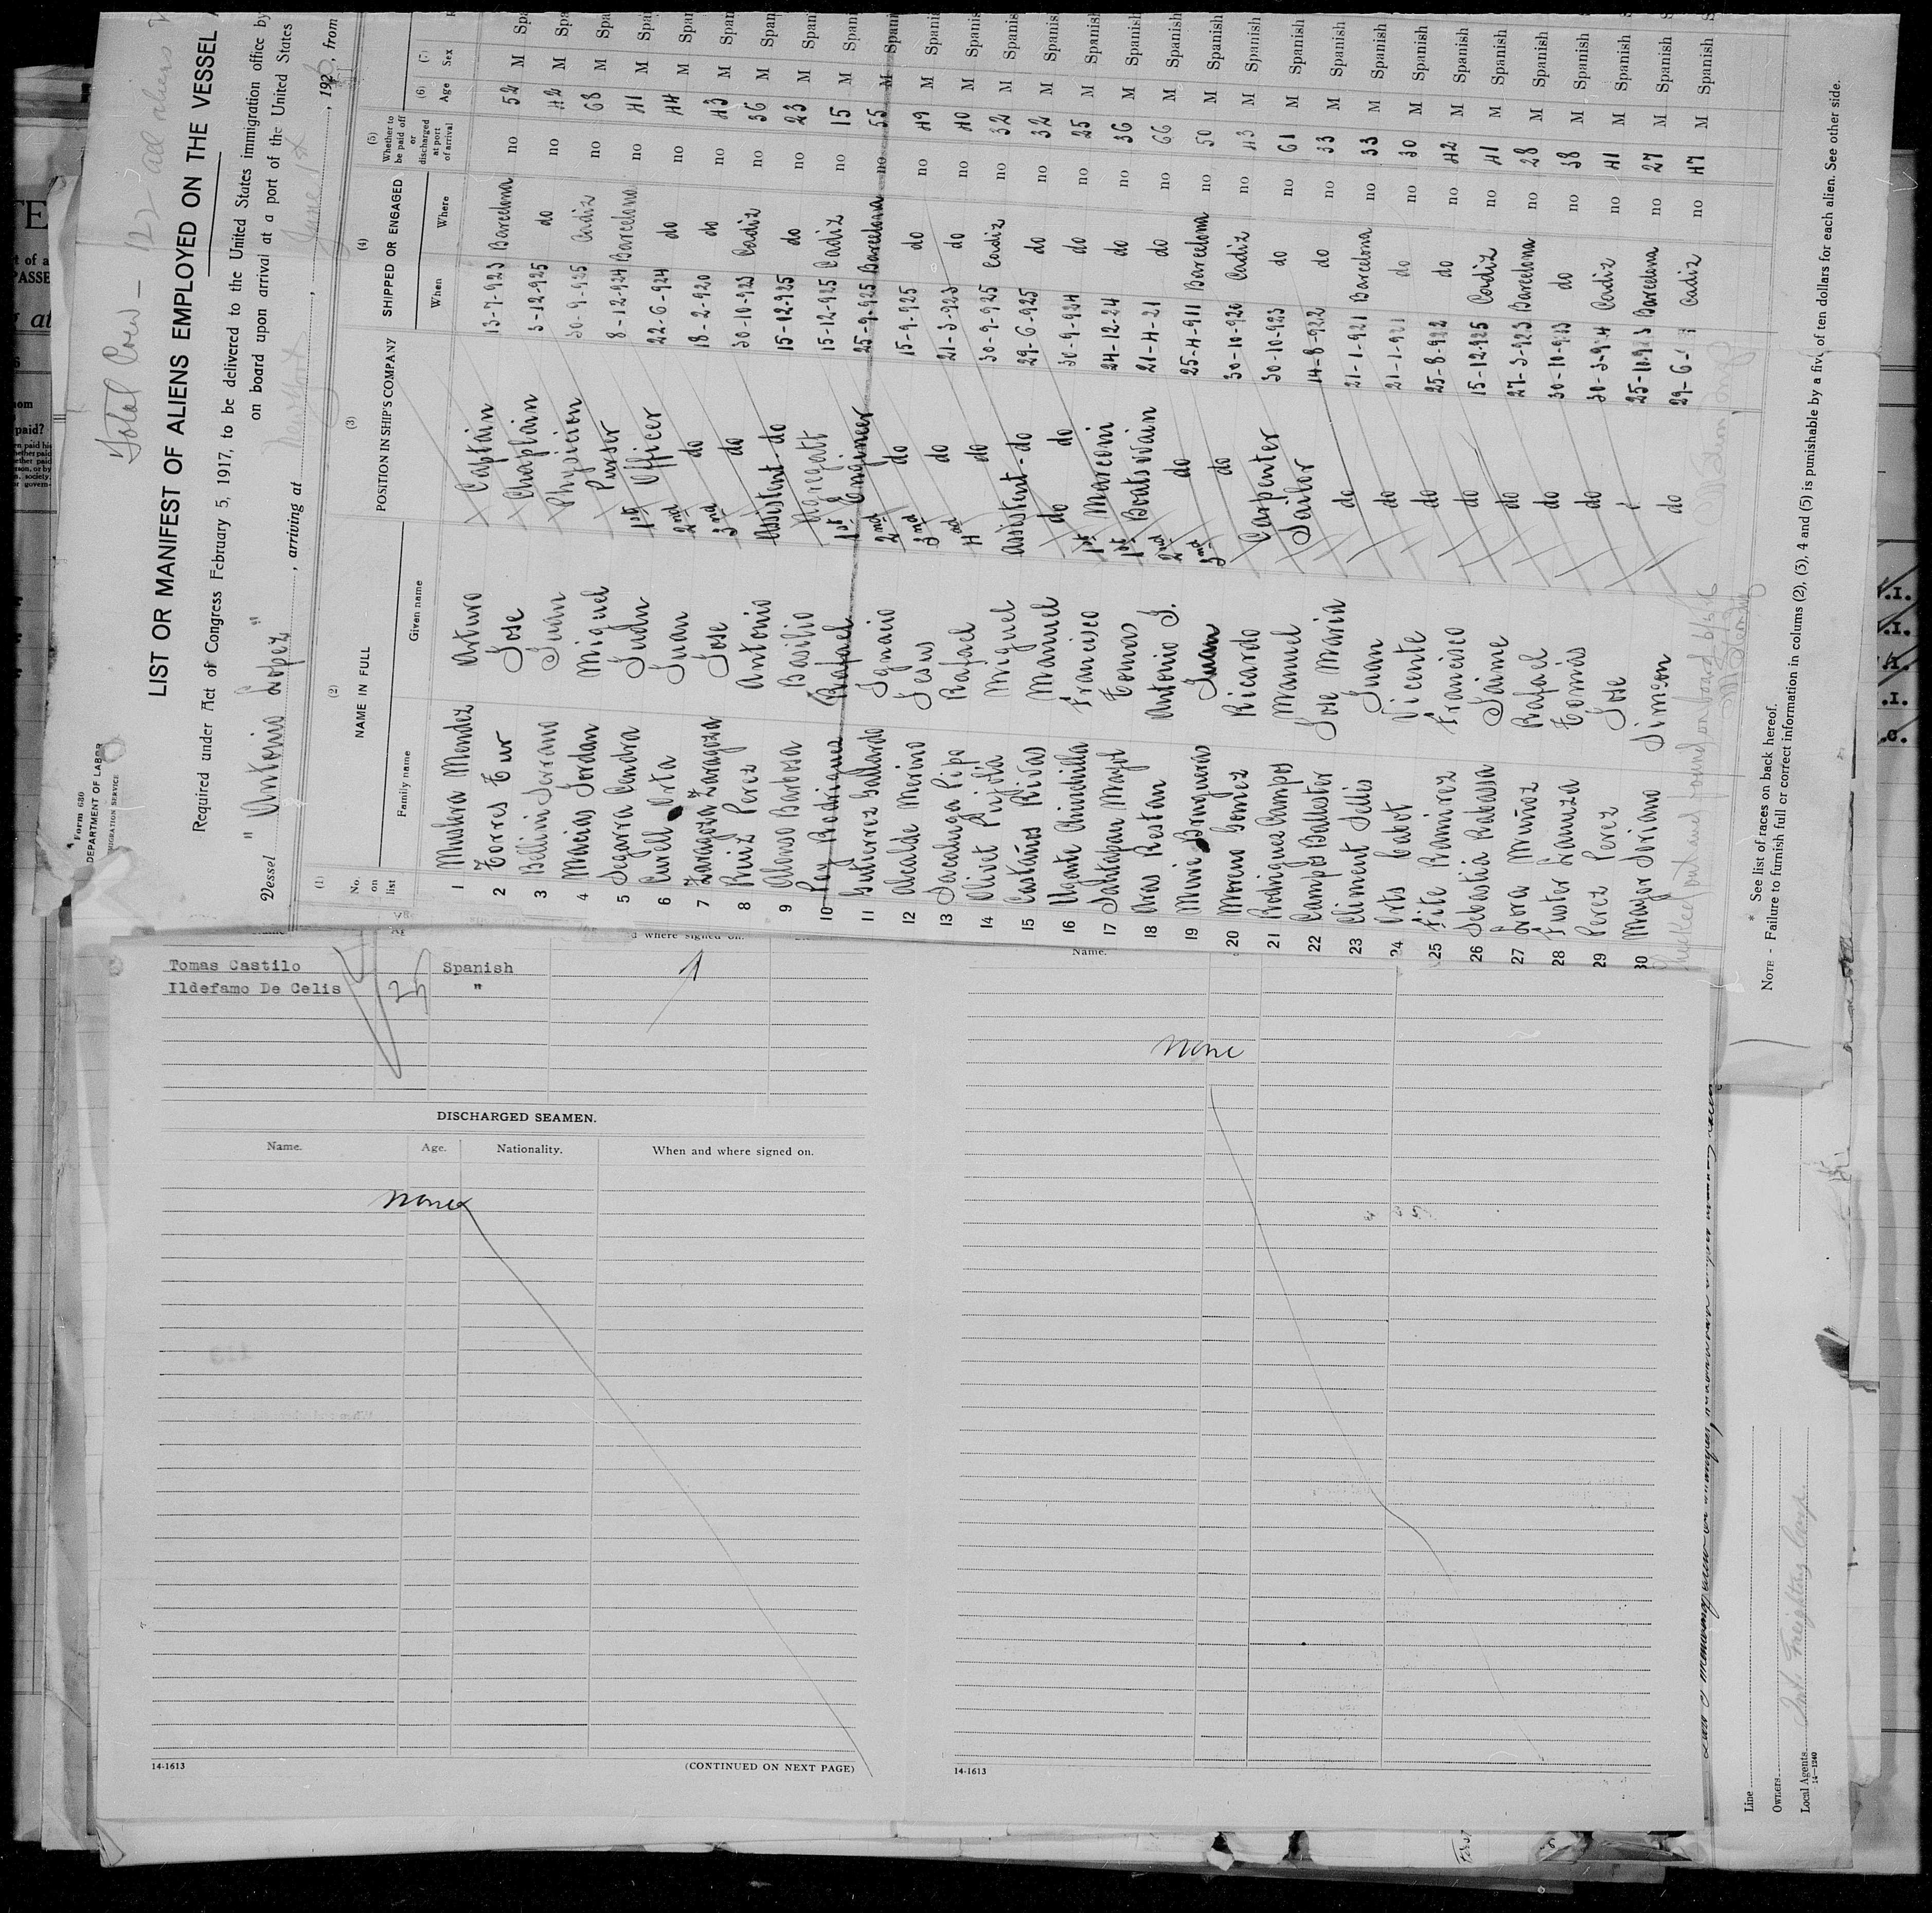 Total Crew - 122 - all others
Form 630
DEPARTMENT OF LABOR
IMMIGRATION SERVICE
LIST OR MANIFEST OF ALIENS EMPLOYED ON THE VESSEL
Required under Act of Congress February 5, 1917, to be delivered to the United States immigration office by
on board upon arrival at a port of the United States
Vessel "Antonio Lopez", arriving at New York, June 1st, 1926, from
(1) (2) (3) (4) (5) (6) (7)
No. on list NAME IN FULL POSITION IN SHIP'S COMPANY SHIPPED OR ENGAGED Whether to be paid off or discharged at port of arrival Age Sex
Family name Given name When Where
1 Mustera Mendez Arturo Captain 13-7-923 Barcelona no 52 M Spa
2 Torres Tur Jose Chaplain 3-12-925 do no 42 M Spa
3 Bellini Serrano Juan Physicion 30-9-925 Cadiz no 68 M Spa
4 Macias Jordan Miguel Purser 8-12-924 Barcelona no 41 M Spa
5 Segarra Cendra Juan 1st Officer 22-6-924 do no 44 M Span
6 Curell Orta Juan 2nd do 18-2-920 do no 43 M Span
7 Zaragoza Zaragoza Jose 3nd do 30-10-923 Cadiz no 36 M Span
8 Ruiz Perez Antonio Assistent-do 15-12-925 do no 23 M Span
9 Alonso Barbosa Basilio Agregatt 15-12-925 Cadiz no 15 M Span
10 Pey Rodriguez Rafael 1st Engineer 25-9-925 Barcelona no 55 M Spani
11 Gutierrez Gallardo Ignacio 2nd do 15-9-925 do no 49 M Spani
12 Alcalde Merino Jesus 3nd do 21-3-923 do no 40 M Spanis
13 Sacaluga Pipo Rafael 4nd do 30-9-925 Cadiz no 32 M Spanis
14 Olivet Pujolá Miguel Assistent-do 29-6-925 do no 32 M Spanis
15 Castaños Rivas Manuel do do 30-9-924 do no 25 M Spanish
16 Ugarte Chinchilla Francisco 1st Marconi 24-12-24 do no 36 M Spanish
17 Santapau Mayol Tomas 1st Boatswain 21-4-21 do no 66 M Spanish
18 Aras Restan Antonio J. 2nd do 25-4-911 Barcelona no 50 M Spanish
19 Mune Brugueras Juan 3nd do 30-10-920 Cadiz no 43 M Spanish
20 Moreno Gomez Ricardo Carpenter 30-10-923 do no 61 M Spanish
21 Rodriguez Campos Manuel Sailor 14-8-922 do no 33 M Spanish
22 Campos Ballester Jose Maria do 21-1-921 Barcelona no 33 M Spanish
23 Climent Sellés Juan do 21-1-921 do no 30 M Spanish
24 Orts Cabot Vicente do 25-8-922 do no 42 M Spanish
25 Fite Ramirez Francisco do 15-12-925 Cadiz no 41 M Spanish
26 Sebastiá Rabassa Jaime do 27-3-923 Barcelona no 28 M Spanish
27 Lora Muñoz Rafael do 30-10-923 do no 38 M Spanish
28 Fuster Lanuza Tomás do 30-3-924 Cadiz no 41 M Spanish
29 Perez Perez Jose 25-10-923 Barcelona no 27 M Spanish
30 Mayor Soriano Simeon do 29-6- Cadiz no 47 M Spanish
and found on board 6/5/26
* See list of races on back hereof.
NOTE - Failure to furnish full or correct information in colums (2), (3), 4 and (5) is punishable by a five of ten dollars for each alien. See other side.
where signed on.
Tomas Castilo Spanish
Ildefamo De Celis 25 "
DISCHARGED SEAMEN.
Name. Age. Nationality. When and where signed on.
None
14-1613 (CONTINUED ON NEXT PAGE)
Name.
None
14-1613
Line
Owners
Local Agents Int. Freighting Corp.
14-1240